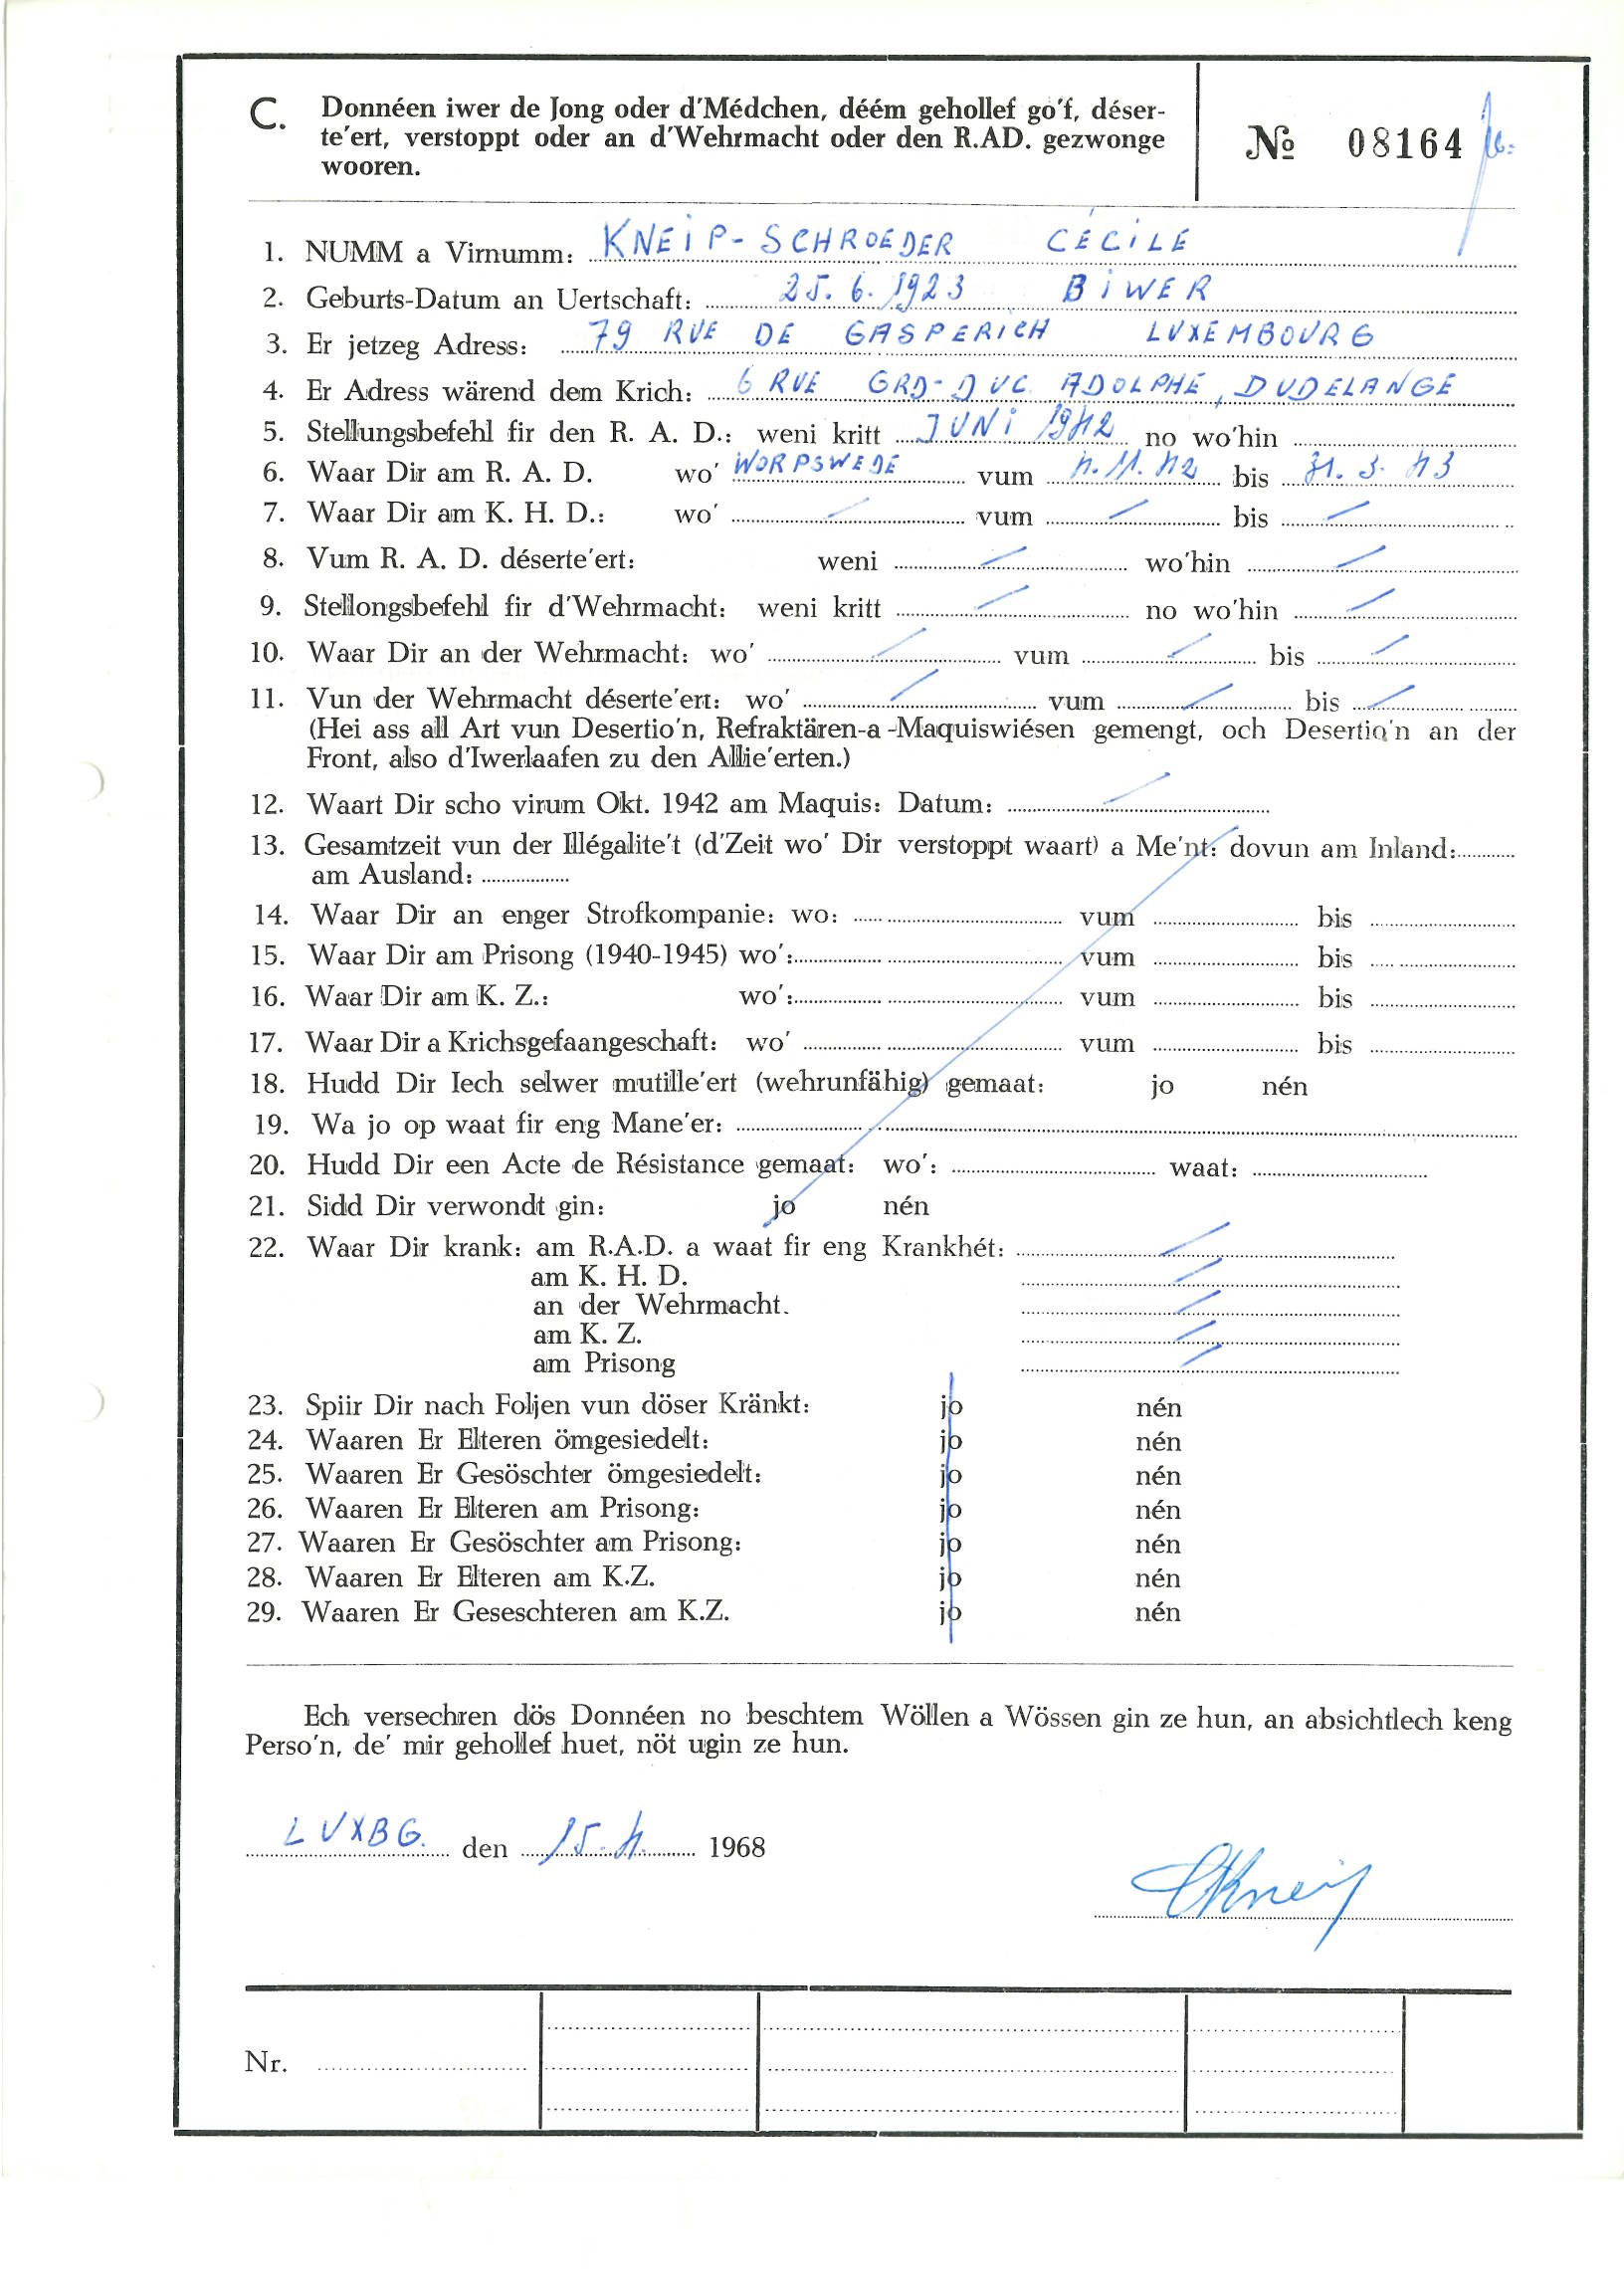 C. Donnéen iwer de Jong oder d'Médchen, déém gehollef go'f, déser-
te'ert, verstoppt oder an d'Wehrmacht oder den R.AD. gezwonge
wooren.
№ 08164
1. NUMM a Virnumm: KNEIP-SCHROEDER CÉCILE
2. Geburts-Datum an Uertschaft: 25.6.1923 BIWER
3. Er jetzeg Adress: 79 RUE DE GASPERICH LUXEMBOURG
4. Er Adress wärend dem Krich: 6 RUE GRD-DUC ADOLPHE, DUDELANGE
5. Stellungsbefehl fir den R. A. D.: weni kritt JUNI 1942 no wo'hin
6. Waar Dir am R. A. D. wo' WORPSWEDE vum 4.11.42 bis 31.3.43
7. Waar Dir am K. H. D.: wo' / vum / bis /
8. Vum R. A. D. déserte'ert: weni / wo'hin /
9. Stellongsbefehl fir d'Wehrmacht: weni kritt / no wo'hin /
10. Waar Dir an der Wehrmacht: wo' / vum / bis /
11. Vun der Wehrmacht déserte'ert: wo' / vum / bis /
(Hei ass all Art vun Desertio'n, Refraktären-a-Maquiswiésen gemengt, och Desertio'n an der
Front, also d'Iwerlaafen zu den Allie'erten.)
12. Waart Dir scho virum Okt. 1942 am Maquis: Datum: /
13. Gesamtzeit vun der Illégalite't (d'Zeit wo' Dir verstoppt waart) a Me'nt: dovun am Inland:
am Ausland:
14. Waar Dir an enger Strofkompanie: wo: vum bis
15. Waar Dir am Prisong (1940-1945) wo': vum bis
16. Waar Dir am K. Z.: wo': vum bis
17. Waar Dir a Krichsgefaangeschaft: wo' vum bis
18. Hudd Dir Iech selwer mutille'ert (wehrunfähig) gemaat: jo nén
19. Wa jo op waat fir eng Mane'er:
20. Hudd Dir een Acte de Résistance gemaat: wo': waat:
21. Sidd Dir verwondt gin: jo nén
22. Waar Dir krank: am R.A.D. a waat fir eng Krankhét: /
am K. H. D. /
an der Wehrmacht. /
am K. Z. /
am Prisong /
23. Spiir Dir nach Foljen vun döser Kränkt: jo nén
24. Waaren Er Elteren ömgesiedelt: jo nén
25. Waaren Er Gesöschter ömgesiedelt: jo nén
26. Waaren Er Elteren am Prisong: jo nén
27. Waaren Er Gesöschter am Prisong: jo nén
28. Waaren Er Elteren am K.Z. jo nén
29. Waaren Er Geseschteren am K.Z. jo nén
Ech versechren dös Donnéen no beschtem Wöllen a Wössen gin ze hun, an absichtlech keng
Perso'n, de' mir gehollef huet, nöt ugin ze hun.
LUXBG. den 15.4. 1968
CKneip
Nr.